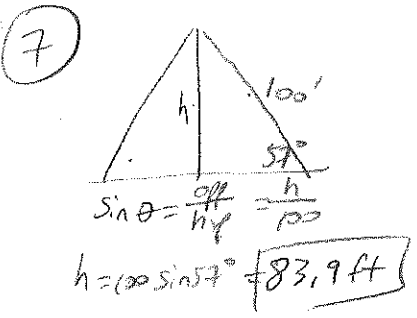 7
100'
h
57°
sin θ = opp/hyp = h/100
h = 100 sin 57° = 83.9 ft